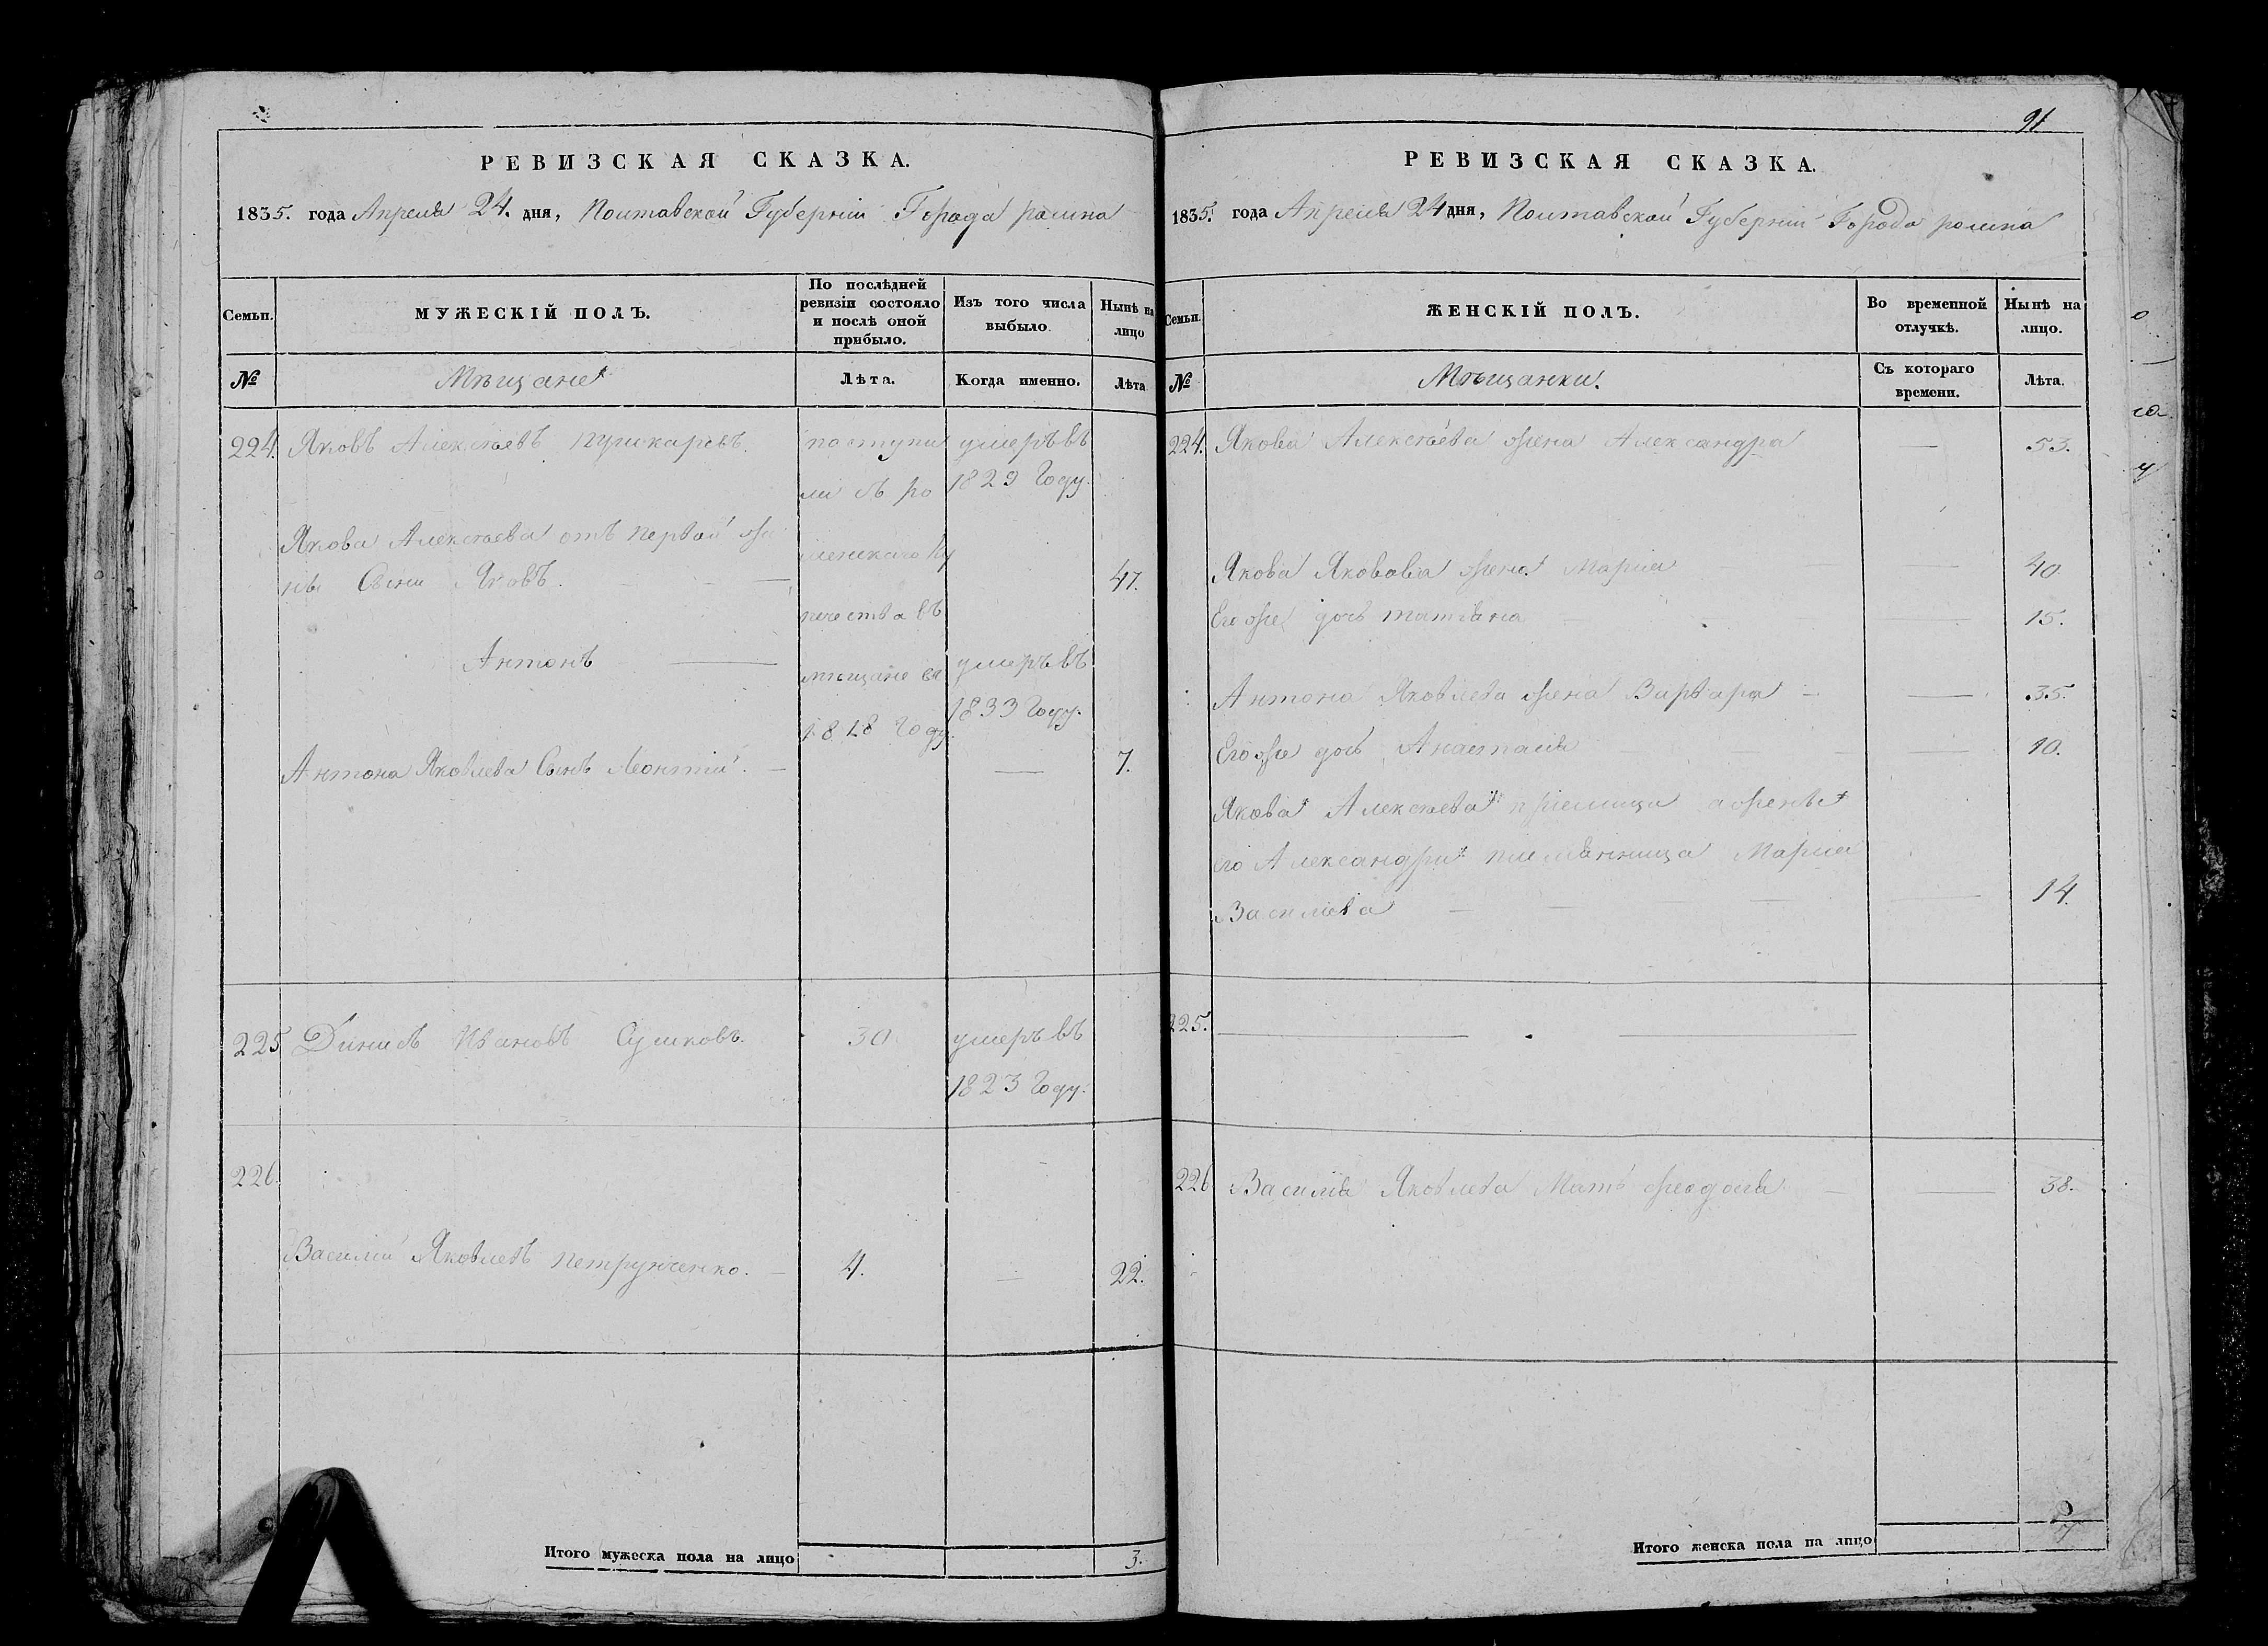 РЕВИЗСКАЯ СКАЗКА.
1835. года Апреля 24. дня, Полтавской Губерніи Города ромна
Семьи.
МУЖЕСКІЙ ПОЛЪ.
По послѣдней
ревизіи состояло
и послѣ оной
прибыло.
Изъ того числа
выбыло.
Нынѣ на
лицо
№
Мѣщане
Лѣта.
Когда именно.
Лѣта
224. Яковъ Алексѣевъ пушкаревъ. поступи умеръ въ
ли съ ро 1829 Году.
Якова Алексѣева отъ первой же
ны Сыни Яковъ. 47.
менскаго Ку
печества въ
Антонъ умеръ въ
мѣщане въ
1833 Году.
1818 Году.
Антона Яковлева Сынъ Леонтій. 7.
225 Динисъ Ивановъ Сушковъ. 30 умеръ въ
1823 Году.
226.
Василій Яковлевъ петрунченко. 4. 22.
Итого мужеска пола на лицо 3.
91
РЕВИЗСКАЯ СКАЗКА.
1835. года Апреля 24 дня, Полтавской Губерніи Города ромна
Семьи.
ЖЕНСКІЙ ПОЛЪ.
Во временной
отлучкѣ.
Нынѣ на
лицо.
№
Мѣщанки.
Съ котораго
времени.
Лѣта.
224. Якова Алексѣева жена Александра 53.
Якова Яковлева жена Марія 40
Его же дочь татіяна 15.
Антона Яковлева жена Варвара 35.
Его же дочь Анастасія 10.
Якова Алексѣева пріемица а женѣ
его Александри племянница Марія
Василіева 14.
225.
226 Василія Яковлева Мать феодосія 38.
Итого женска пола на лицо 7